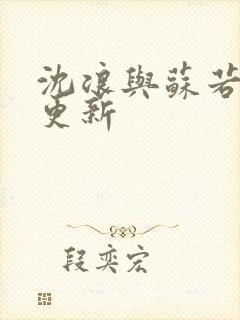 沈浪與蘇若
更新
段奕宏